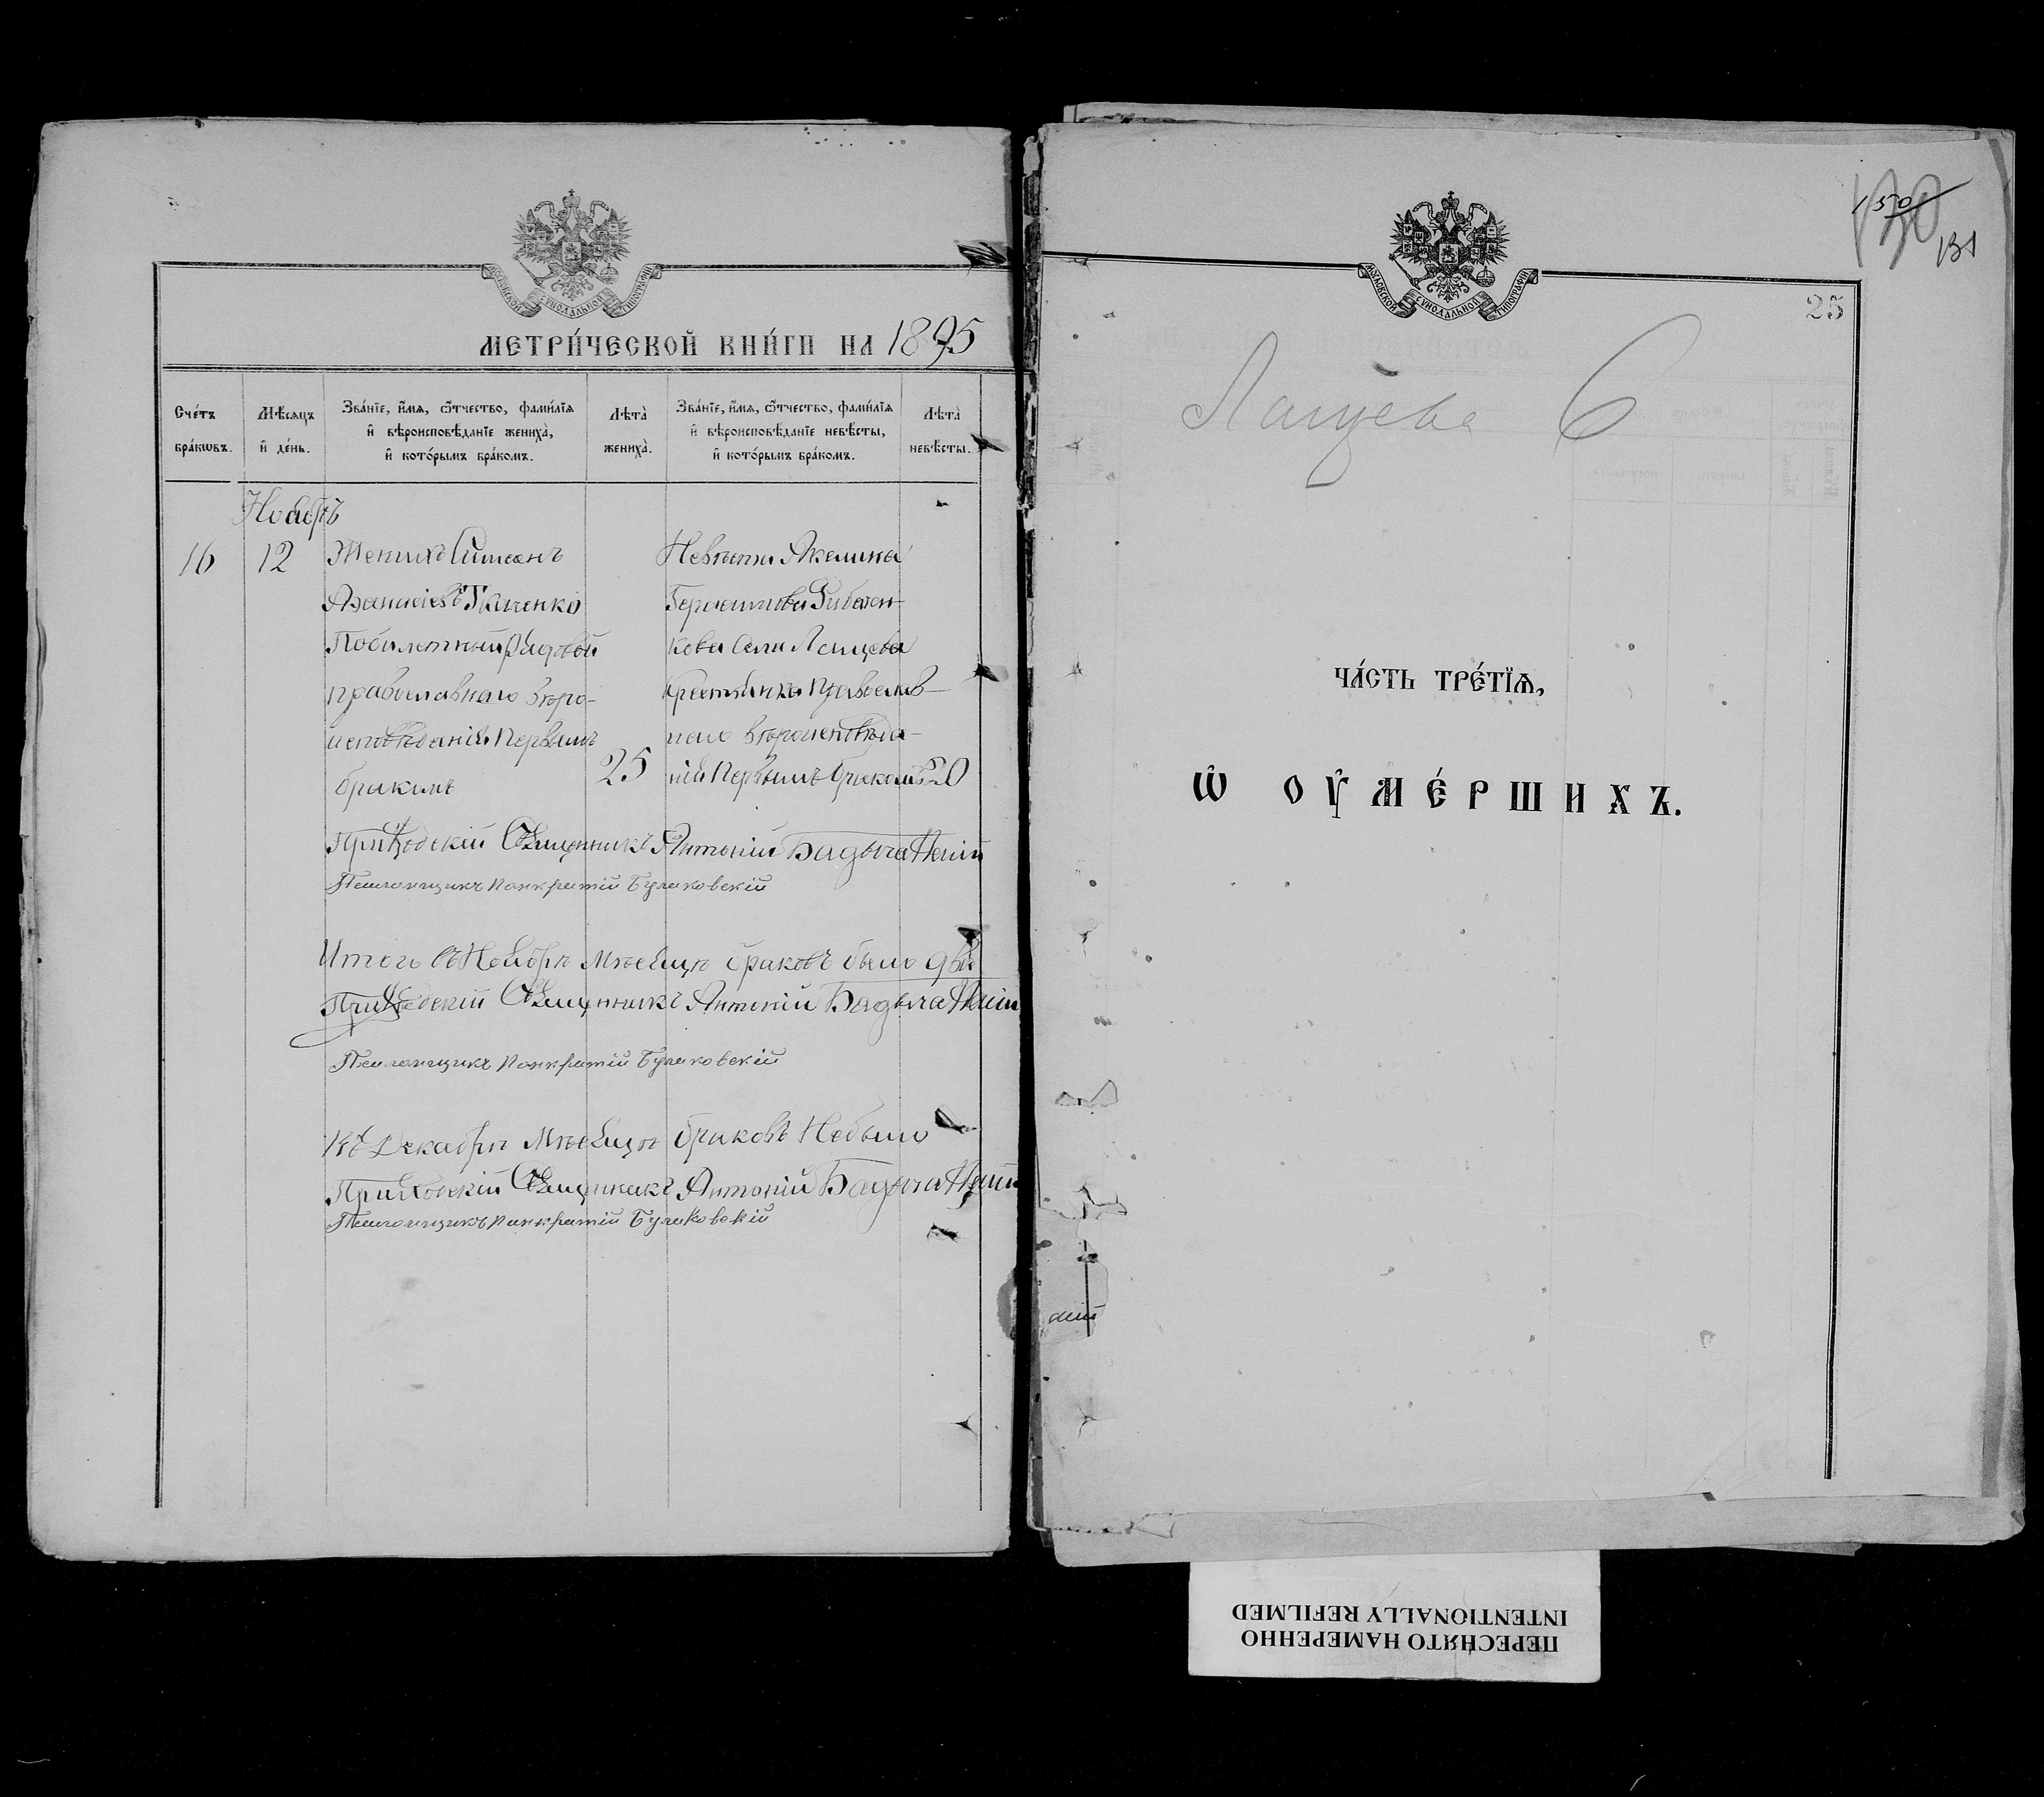 МОСКОВСКОЙ СѴНОДАЛЬНОЙ ТИПОГРАФІИ
МЕТРИ́ЧЕСКОЙ КНИ́ГИ НА 1895
Сче́тъ бра́кѡвъ.
Мѣ́сяцъ и҆ де́нь.
Зва́нїе, и҆́мѧ, ѻ҆́тчество, фами́лїѧ и҆ вѣроисповѣ́данїе жениха̀, и҆ кото́рымъ бра́комъ.
Лѣта̀ жениха̀.
Зва́нїе, и҆́мѧ, ѻ҆́тчество, фами́лїѧ и҆ вѣроисповѣ́данїе невѣ́сты, и҆ кото́рымъ бра́комъ.
Лѣта̀ невѣ́сты.
Ноябрь
16 12 Женихъ Симеонъ
Аѳанасіевъ Ткаченко
Побилетный рядовой
православнаго вѣро-
исповѣданія первымъ
бракомъ
25
Невѣста Акелина
Герасимова
кова Села Лащева
крестьянка православ-
наго вѣроисповѣда-
нія Первымъ бракомъ 20
Приходскій Священникъ Антоній
Псаломщикъ Панкратій Булаковскій
Итого въ Ноябрѣ Мѣсяцѣ браковъ было два
Приходскій Священникъ Антоній
Псаломщикъ Панкратій Булаковскій
Въ Декабрѣ Мѣсяцѣ браковъ Небыло
Приходскій Священникъ Антоній
Псаломщикъ Панкратій Булаковскій
150
130
131
МОСКОВСКОЙ СѴНОДАЛЬНОЙ ТИПОГРАФІИ
25
Лащева 6
ЧА́СТЬ ТРЕ́ТЇѦ,
Ѡ҆ ОУ҆МЕ́РШИХЪ.
ПЕРЕСНЯТО НАМЕРЕННО
INTENTIONALLY REFILMED